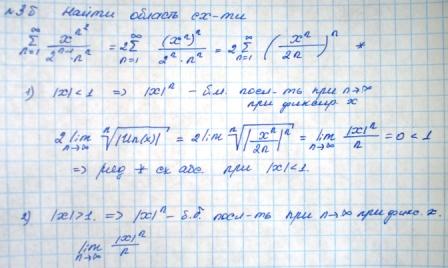 №3б Найти область сх-ти
∞ Σ n=1 x^{n²} / (2^{n-1} · n^n) = 2 ∞ Σ n=1 (x^n)^n / (2^n · n^n) = 2 ∞ Σ n=1 (x^n / 2n)^n *
1) |x| < 1 ⇒ |x|^n - б.м. посл-ть при n→∞
при фиксир. x
2 lim n→∞ ⁿ√|Un(x)| = 2 lim n→∞ ⁿ√|x^n / 2n|^n = lim n→∞ |x|^n / n = 0 < 1
⇒ ряд * сх абс. при |x| < 1.
2) |x| > 1. ⇒ |x|^n - б.б. посл-ть при n→∞ при фикс. x.
lim n→∞ |x|^n / n